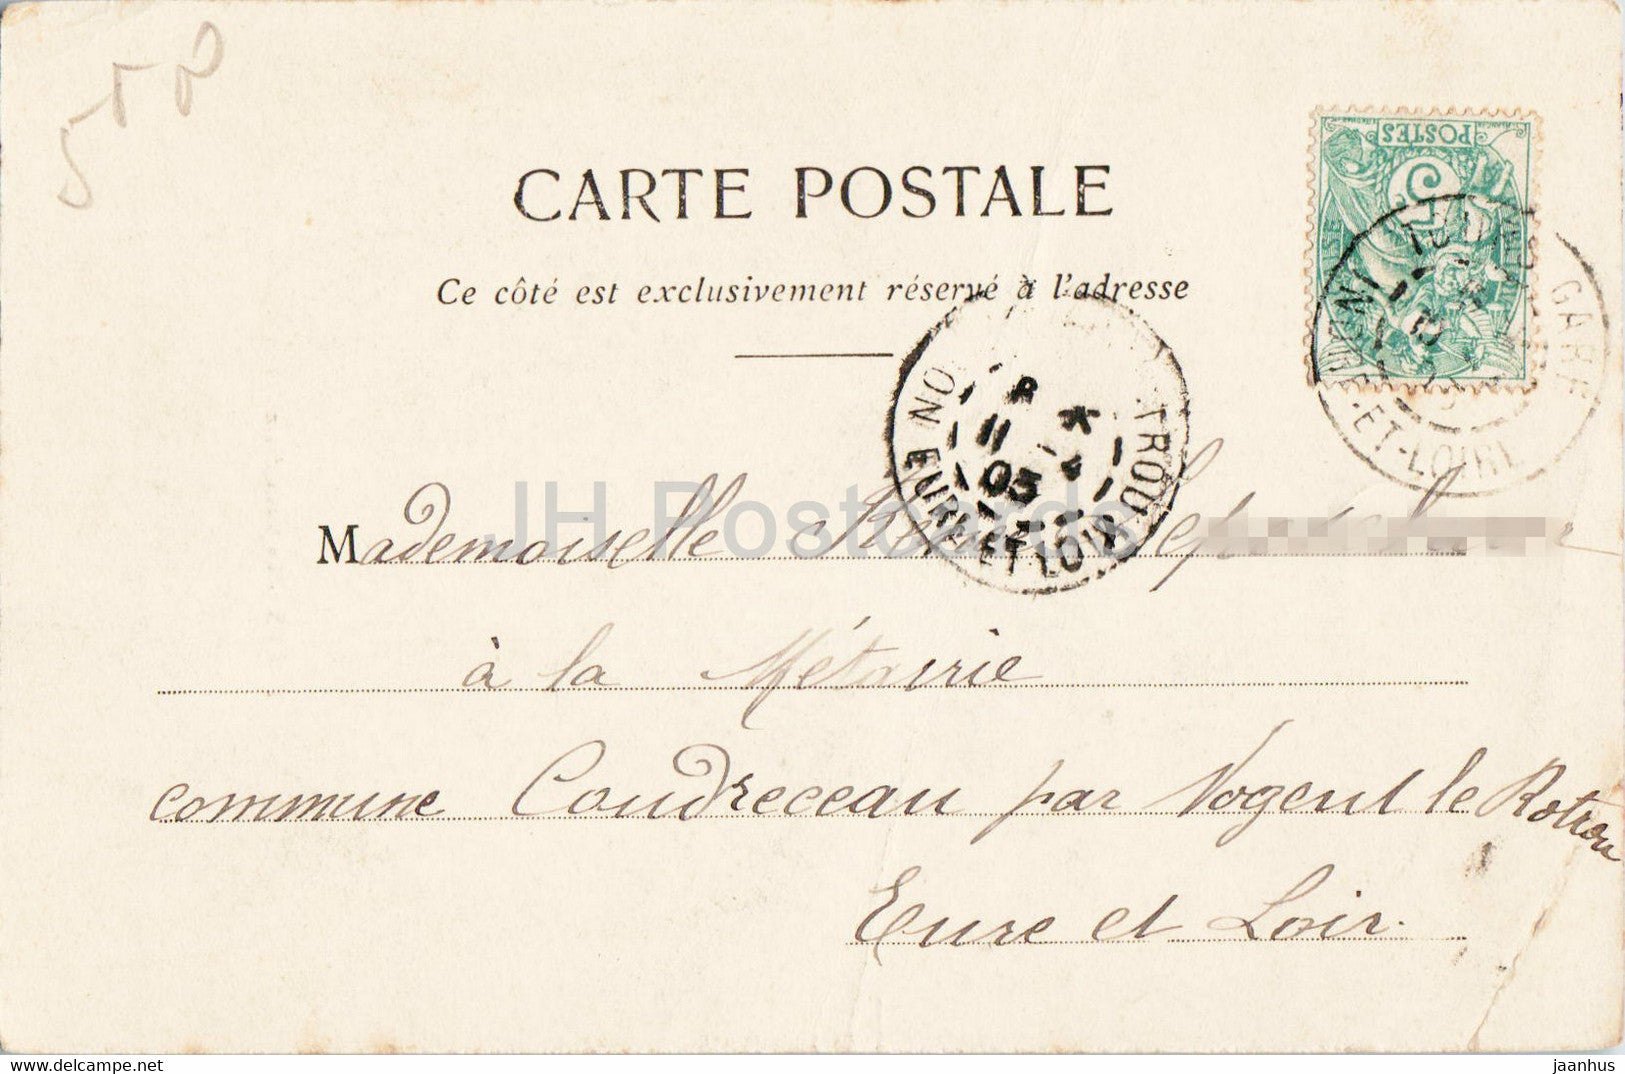 CARTE POSTALE
Ce côté est exclusivement réservé à l'adresse
POSTES
5
TOURS GARE
INDRE-ET-LOIRE
11
05
EURE ET LOIR
JH Postcards
Mademoiselle
à la Métairie
commune Coudreceau par Nogent le Rotrou
Eure et Loir.
delcampe.net
jaanhus